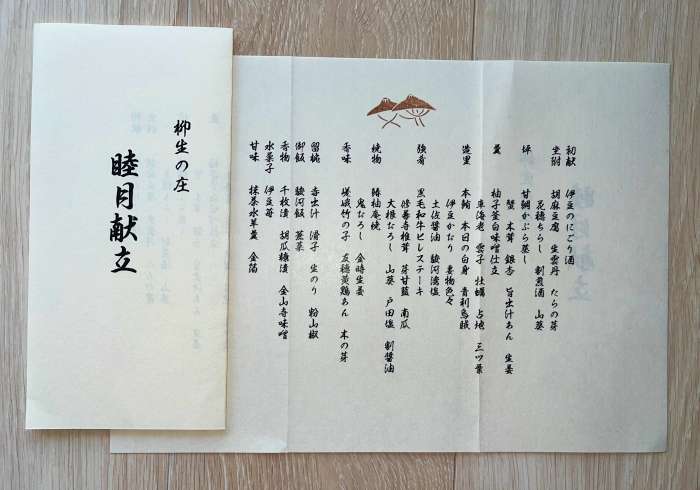 柳生の庄
睦月献立
初献 伊豆のにごり酒
坐附 胡麻豆腐 生雲丹 たらの芽
花穂ちらし 割煎酒 山葵
坪 甘鯛かぶら蒸し
蟹 木茸 銀杏 旨出汁あん 生姜
羹 柚子釜白味噌仕立
車海老 雲子 牡蠣 占地 三ツ葉
造里 本鮪 本日の白身 青利烏賊
伊豆かおり 妻物色々
土佐醤油 駿河湾塩
強肴 黒毛和牛ヒレステーキ
修善寺椎茸 芽甘藍 南瓜
大根おろし 山葵 戸田塩 割醤油
焼物 鰆柚庵焼
鬼おろし 金時生姜
香味 嵯峨竹の子 友穂黄鶏あん 木の芽
留椀 赤出汁 滑子 生のり 粉山椒
御飯 駿河飯 蓋菜
香物 千枚漬 胡瓜糠漬 金山寺味噌
水菓子 伊豆苺
甘味 抹茶水羊羹 金箔